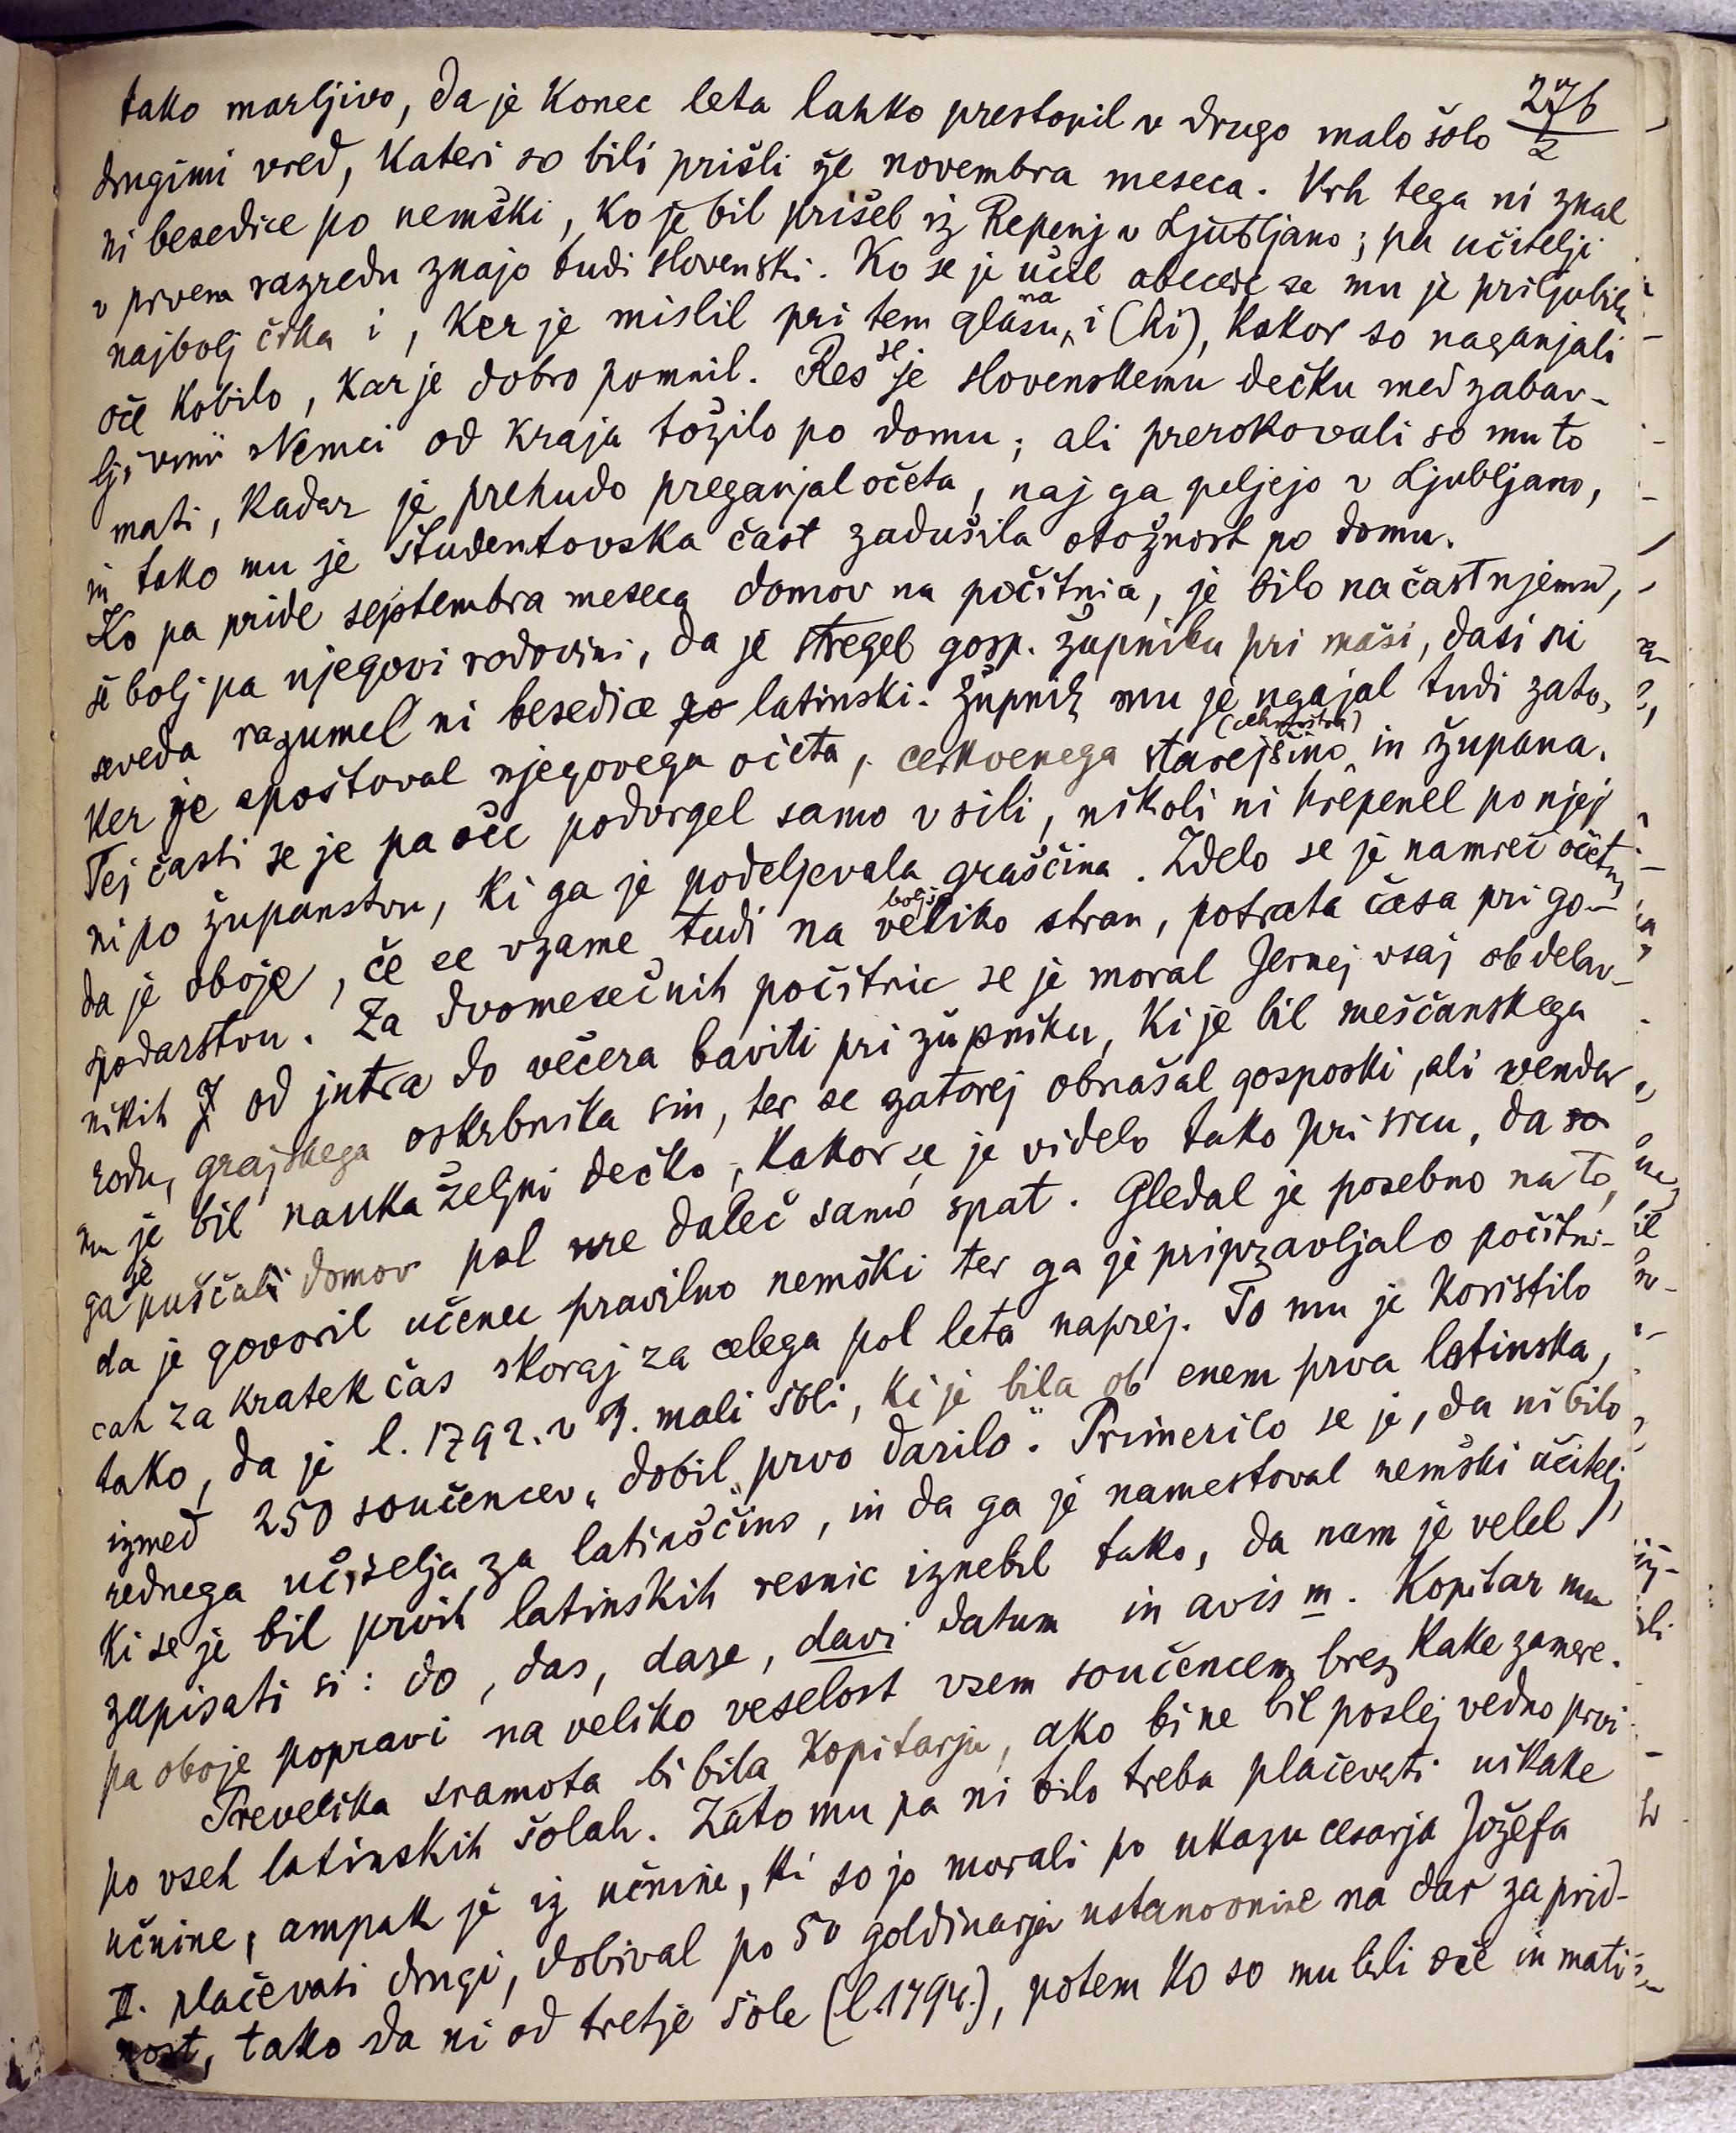 276
2
tako marljivo, da je konec leta lahko prestopil v drugo malo šolo
drugimi vred, kateri so bili prišli že novembra meseca. Vrh tega ni znal
ni besedice po nemški, ko je bil prišel iz Repenj v Ljubljano; pa učitelji
v prvem razredu znajo tudi slovenski. Ko se je učil abecede se mu je priljubila
najbolj črka i, ker je mislil pri tem glasu na i (hi), kakor so naganjali
oče kobilo, kar je dobro pomnil. Res se je slovenskemu dečku med zabav-
ljivimi Nemci od kraja tožilo po domu; ali prerokovali so mu to
mati, kadar je prehudo preganjal očeta, naj ga peljejo v Ljubljano,
in tako mu je študentovska čast zadušila otožnost po domu.
Ko pa pride septembra meseca domov na počitnice, je bilo na čast njemu,
še bolj pa njegovi rodovini, da je stregel gosp. župniku pri maši, dasi ni
seveda razumel ni besedice po latinski. Župnik mu je ugajal tudi zato,
ker je spoštoval njegovega očeta, cerkvenega starejšino (cehmoštra) in župana.
Tej časti se je pa oče podvrgel samo v sili, nikoli ni hrepenel po njej
ni po županstvu, ki ga je podeljevala graščina. Zdelo se je namreč očetu,
da je oboje, če se vzame tudi na boljšo veliko stran, potrata časa pri go-
spodarstvu. Za dvomesečnih počitnic se je moral Jernej vsaj ob delav-
nikih J od jutra do večera baviti pri župniku, ki je bil meščanskega
rodu, grajskega oskrbnika sin, ter se zatorej obnašal gosposki, ali vendar
mu je bil nauka željni dečko, kakor se je videlo tako pri srcu, da so
ga je puščali domov pol ure daleč samo spat. Gledal je posebno na to,
da je govoril učenec pravilno nemški ter ga je pripravljalo počitni-
cah za kratek čas skoraj za celega pol leta naprej. To mu je koristilo
tako, da je l. 1792. v 3. mali šoli, ki je bila ob enem prva latinska,
izmed 250 součencev „dobil prvo darilo“. Primerilo se je, da ni bilo
rednega učitelja za latinščino, in da ga je namestoval nemški učitelj,
ki se je bil prvih latinskih resnic iznebil tako, da nam je velel
zapisati si: do, das, dare, davi datum in avis m. Kopitar mu
pa oboje popravi na veliko veselost vsem součencem brez kake zamere.
Prevelika sramota bi bila Kopitarju, ako bi ne bil poslej vedno prvi
po vseh latinskih šolah. Zato mu pa ni bilo treba plačevati nikake
učnine, ampak je iz učnine, ki so jo morali po ukazu cesarja Jožefa
II. plačevati drugi, dobival po 50 goldinarjev ustanovnine na dar za prid-
nost, tako da ni od tretje šole (l. 1794.), potem ko so mu bili oče in mati